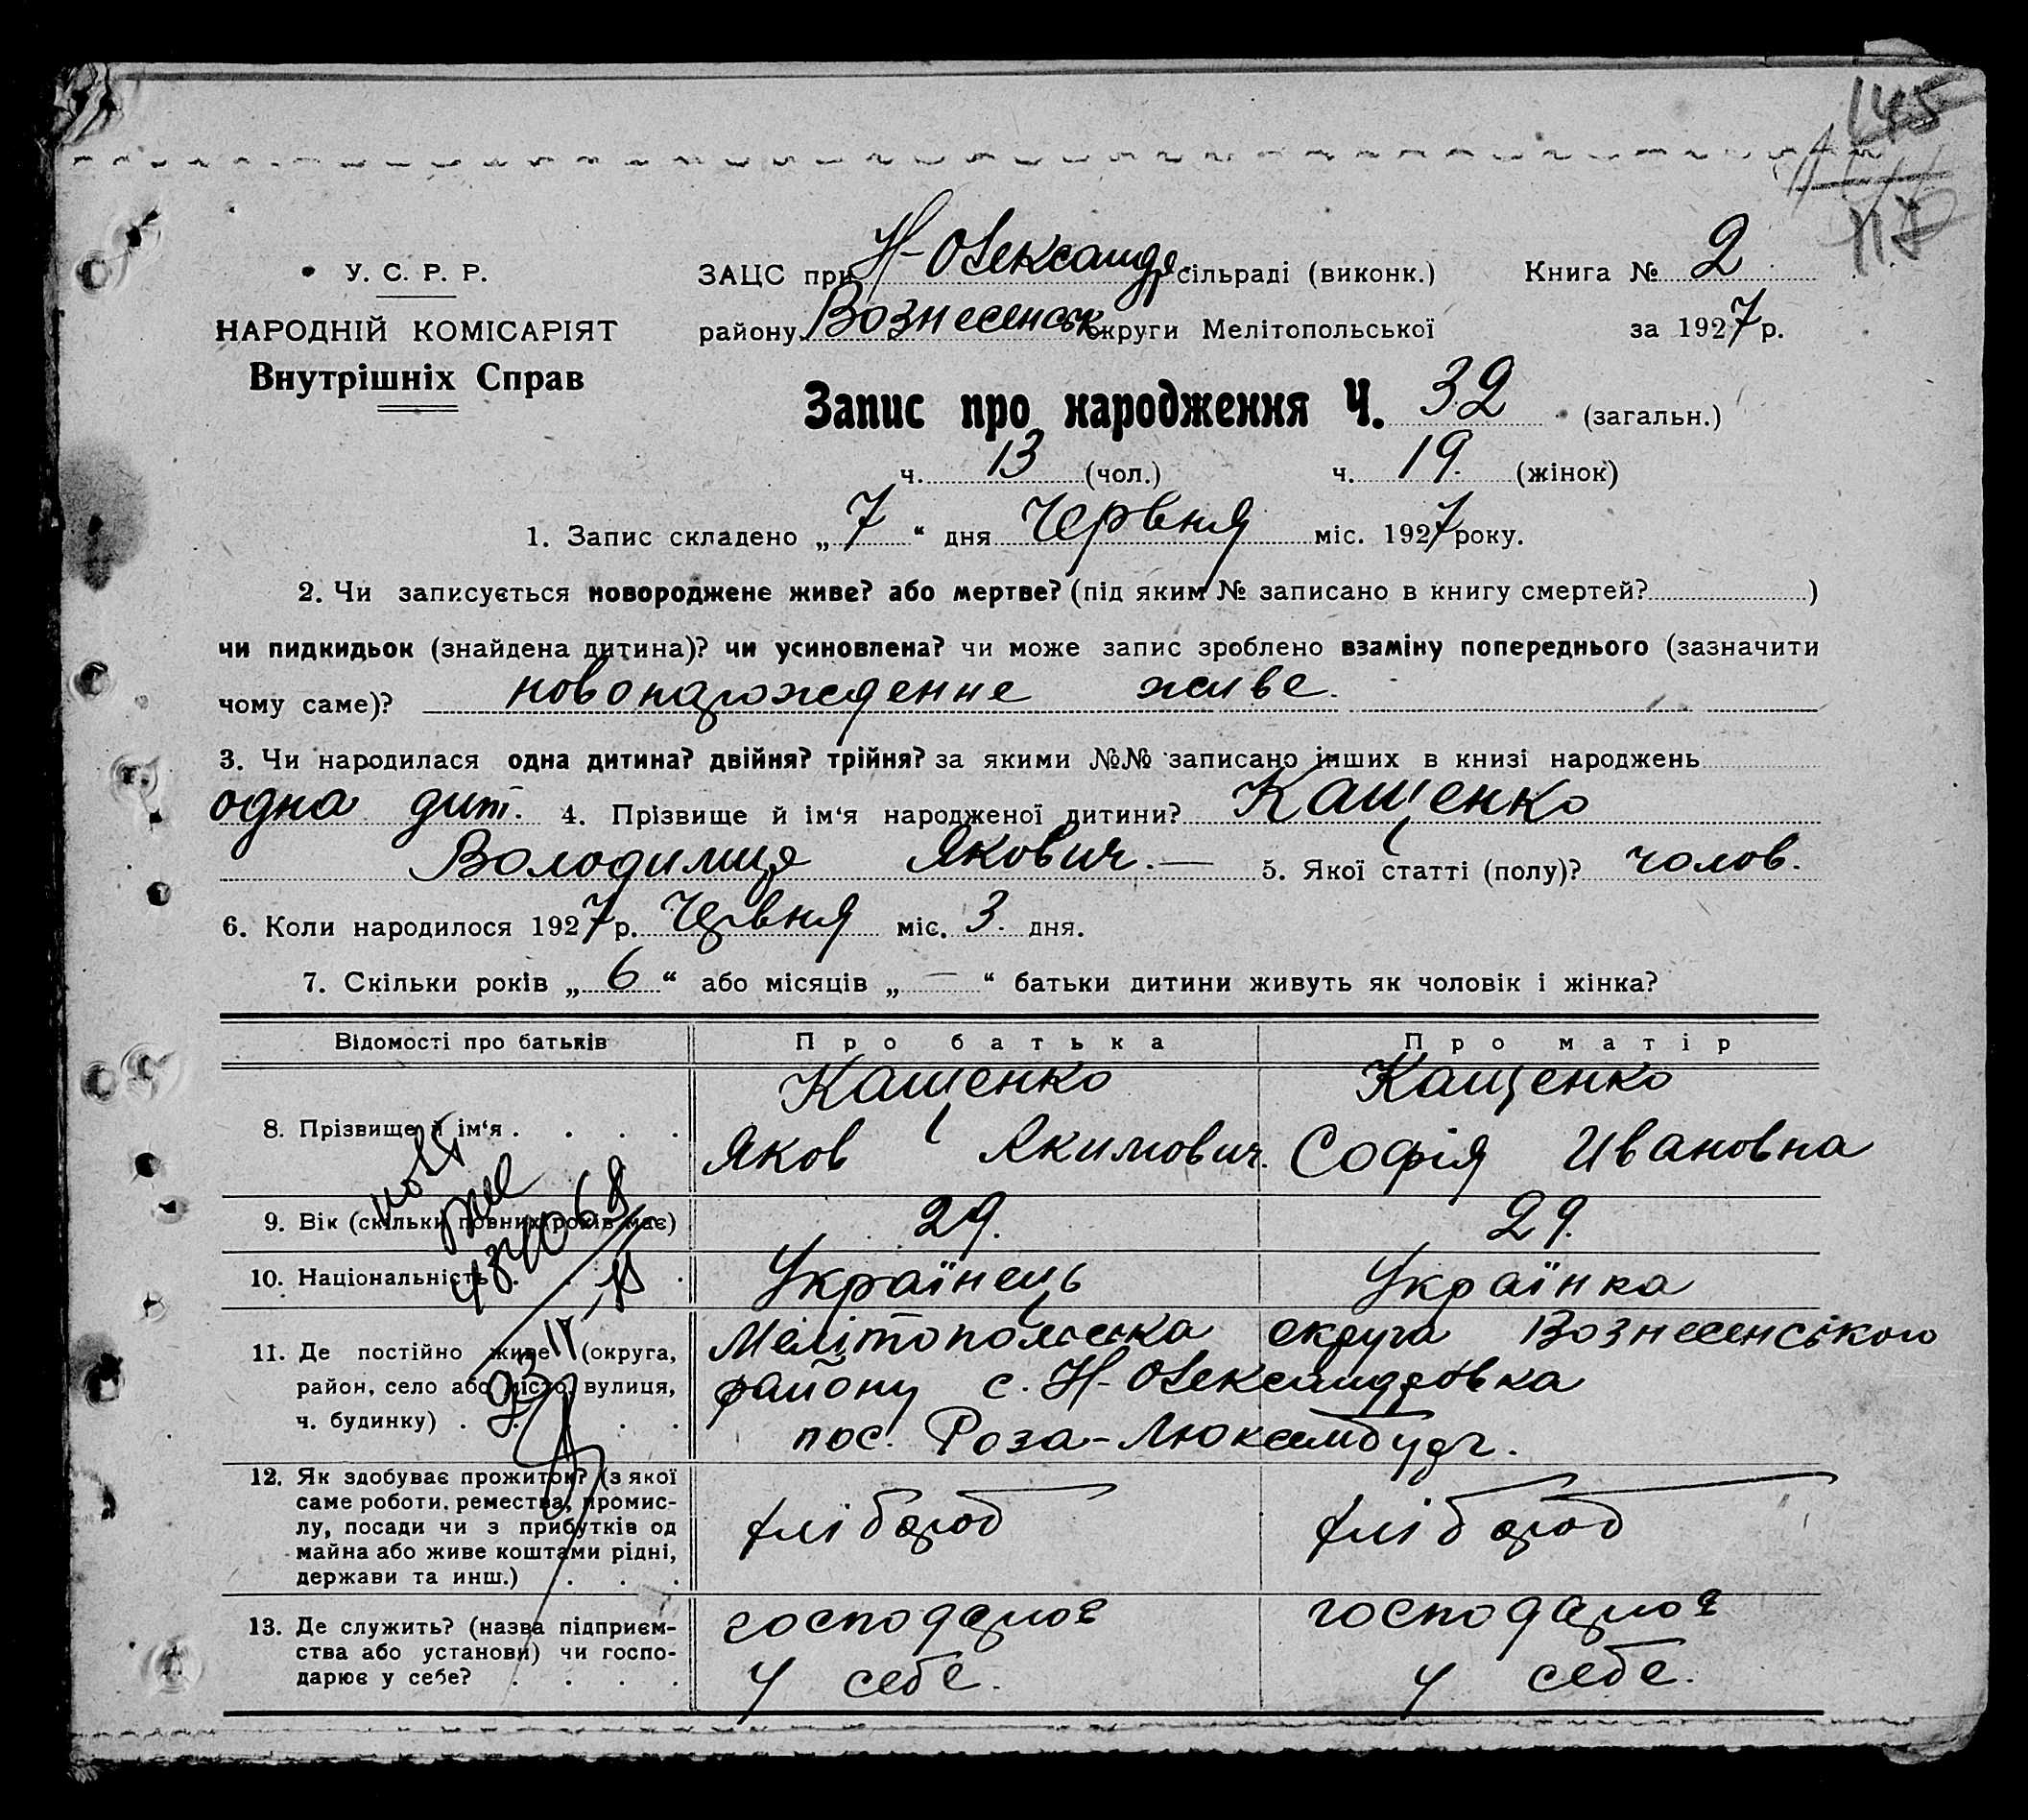 145
117
У. С. Р. Р.
НАРОДНІЙ КОМІСАРІЯТ
Внутрішніх Справ
ЗАЦС при Н-Олександр сільраді (виконк.) Книга № 2
району Вознесенськ округи Мелітопольської за 1927 р.
Запис про народження Ч. 32 (загальн.)
ч. 13 (чол.) ч. 19. (жінок)
1. Запис складено „ 7 “ дня Червня міс. 1927 року.
2. Чи записується новороджене живе? або мертве? (під яким № записано в книгу смертей? )
чи пидкидьок (знайдена дитина)? чи усиновлена? чи може запис зроблено взаміну попереднього (зазначити
чому саме)? новонарожденне живе.
3. Чи народилася одна дитина? двійня? трійня? за якими №№ записано інших в книзі народжень
одна дит. 4. Прізвище й ім‘я народженої дитини? Кащенко
Володимир Якович. — 5. Якої статті (полу)? чолов.
6. Коли народилося 1927 р. Червня міс. 3. дня.
7. Скільки років „ 6 “ або місяців „ — “ батьки дитини живуть як чоловік і жінка?
Відомості про батьків Про батька Про матір
8. Прізвище й ім‘я . . . . Кащенко Яков Якимович. Кащенко Софія Ивановна
9. Вік (скільки повних років має) 29. 29.
10. Національність . . . Українець Українка
11. Де постійно живе (округа, Мелітопольська округа Вознесенського
район, село або місто, вулиця, району с. Н-Олександровка
ч. будинку) . . . . пос. Роза-Люксембург.
12. Як здобуває прожиток? (з якої
саме роботи, ремества, промис-
лу, посади чи з прибутків од хлібороб хлібороб
майна або живе коштами рідні,
держави та инш.) . . .
13. Де служить? (назва підприєм- господарює господарює
ства або установи) чи госпо-
дарює у себе? . . . . у себе. у себе.